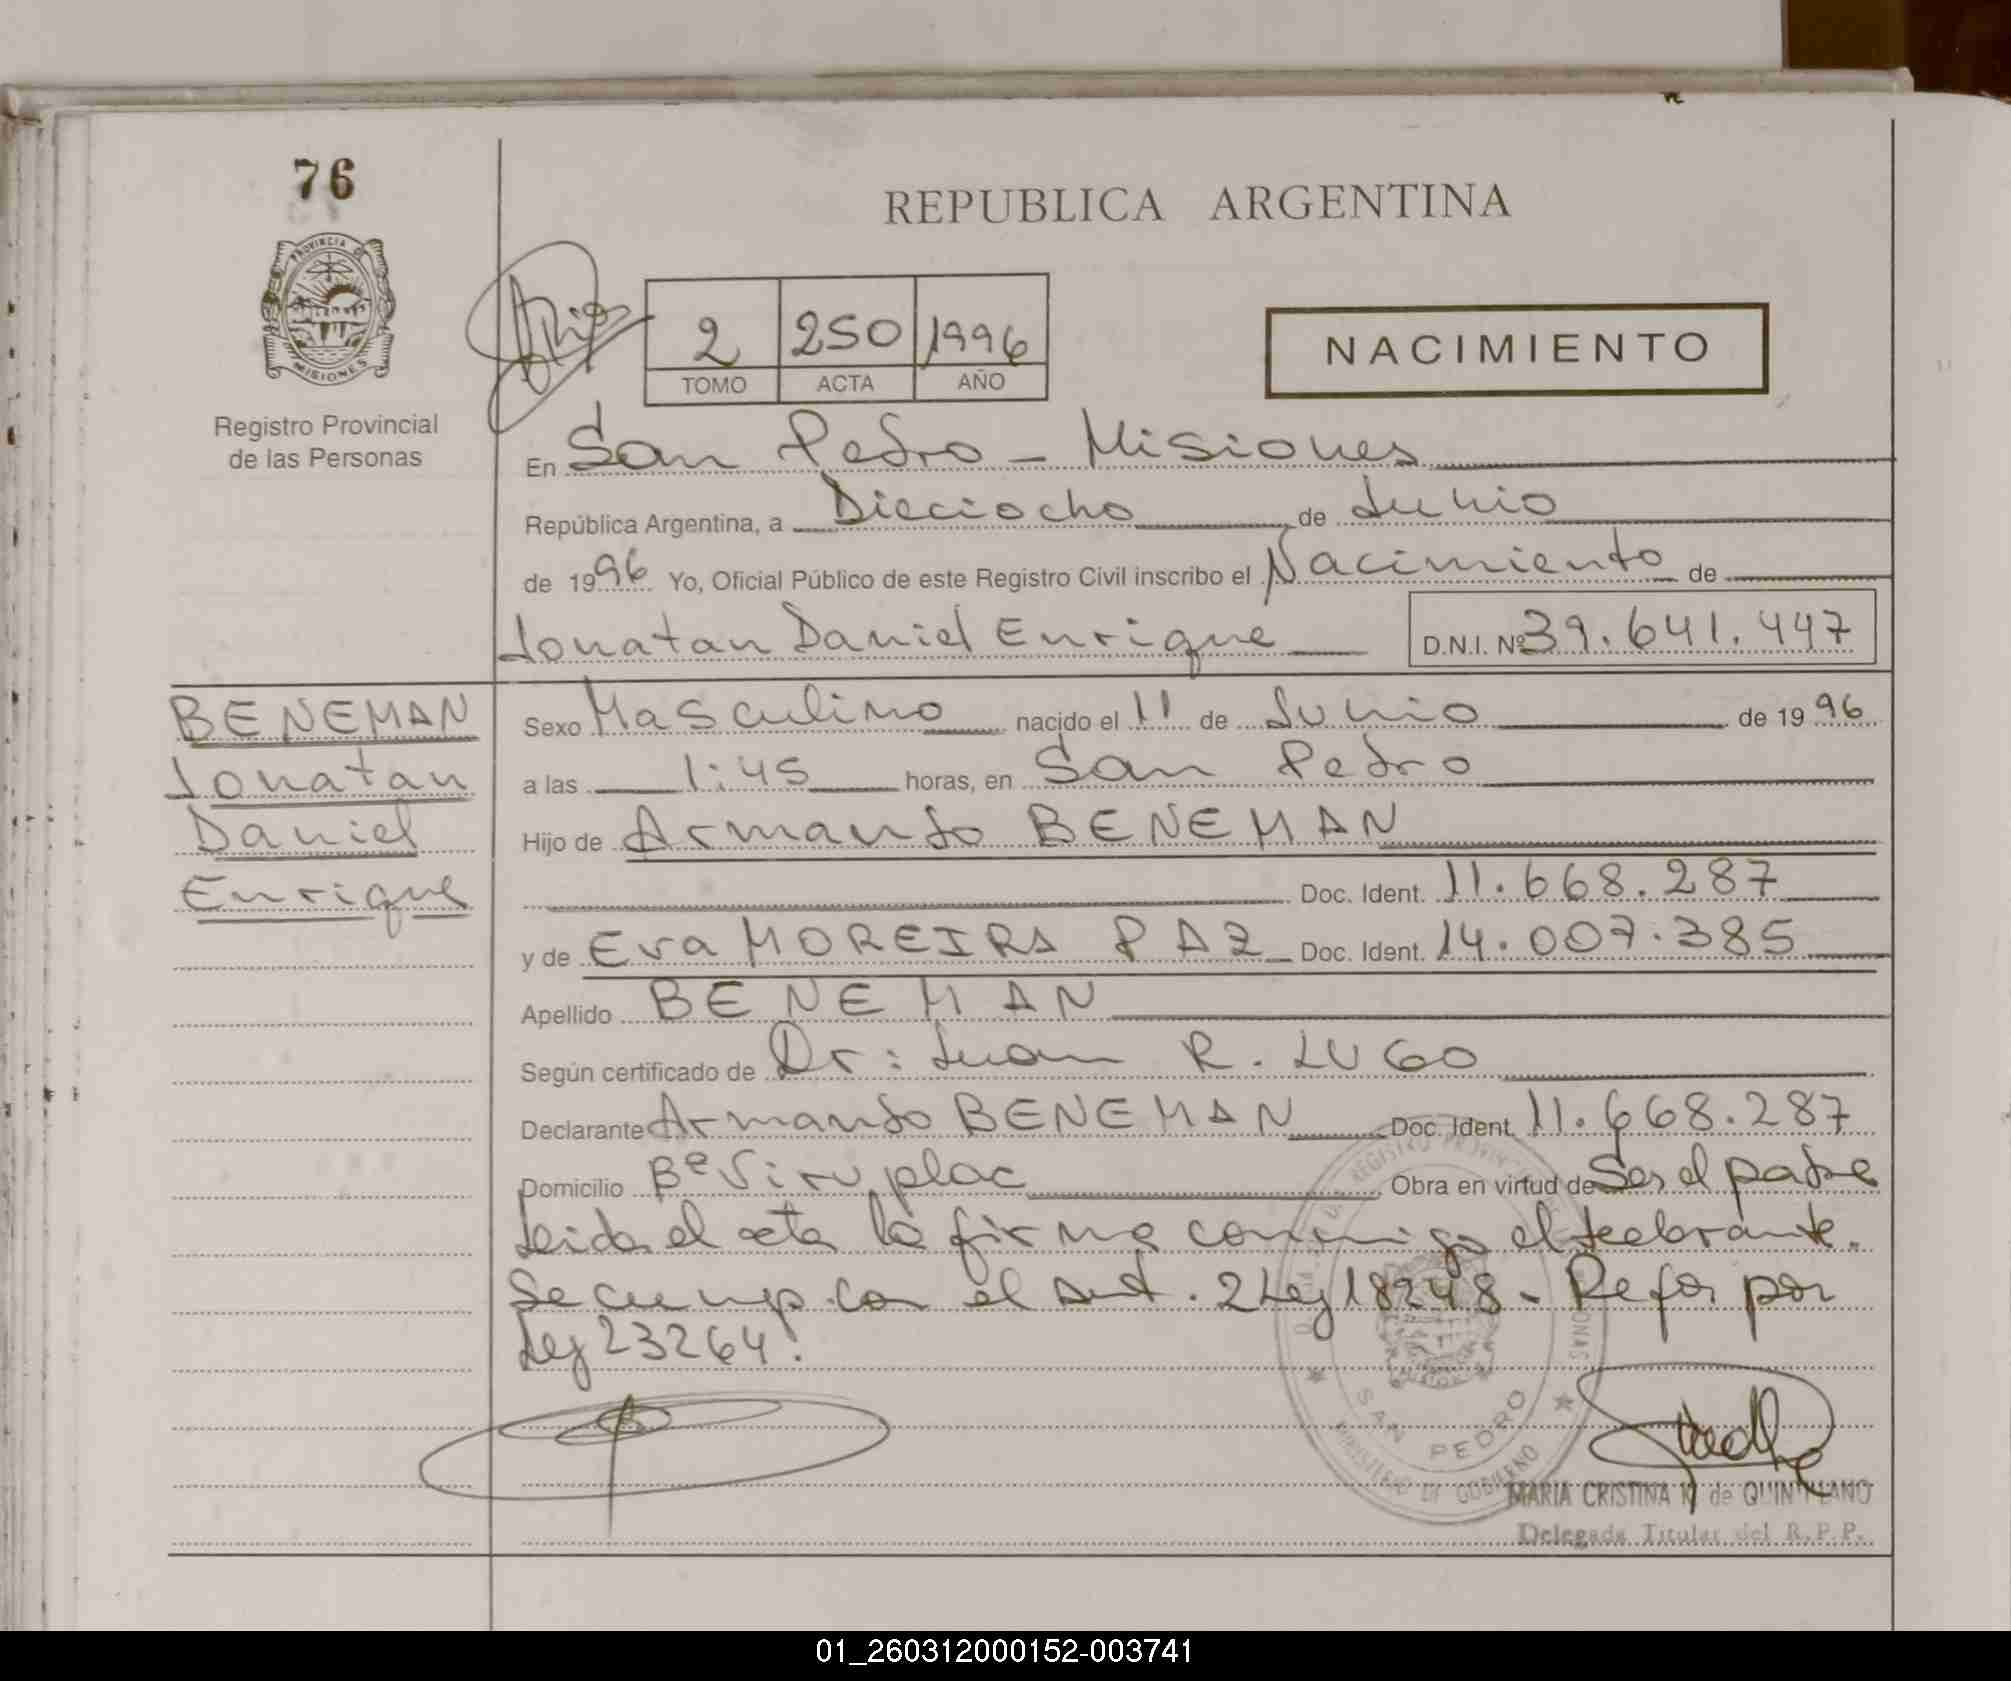 76
REPUBLICA ARGENTINA
PROVINCIA DE
MISIONES
Registro Provincial
de las Personas
2 250 1996
TOMO ACTA AÑO
NACIMIENTO
En San Pedro - Misiones
República Argentina, a Dieciocho de Junio
de 1996 Yo, Oficial Público de este Registro Civil inscribo el Nacimiento de
Jonatan Daniel Enrique D.N.I. Nº 39.641.447
BENEMAN
Jonatan
Daniel
Enrique
Sexo Masculino nacido el 11 de Junio de 1996
a las 1:45 horas, en San Pedro
Hijo de Armando BENEMAN
Doc. Ident. 11.668.287
y de Eva MOREIRA PAZ Doc. Ident. 14.007.385
Apellido BENEMAN
Según certificado de Dr: Juan R. LUGO
Declarante Armando BENEMAN Doc. Ident. 11.668.287
Domicilio Bº Viru plac Obra en virtud de Ser el padre
Leida el acta la firma conmigo el declarante.
Se cumple con el art. 2 Ley 18248 - Refor por
Ley 23264.
SAN PEDRO
MINISTERIO DE GOBIERNO
MARIA CRISTINA de QUINTILANO
Delegada Titular del R.P.P.
01_260312000152-003741